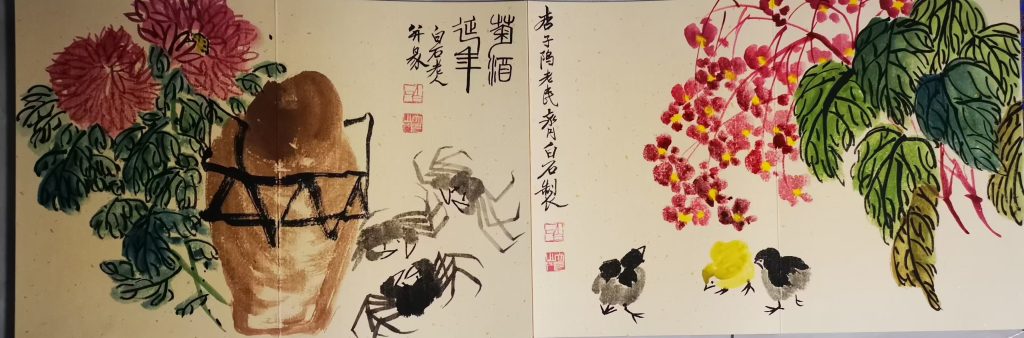 杏子隖老民齊白石製
菊酒
延年
白石老人
并篆